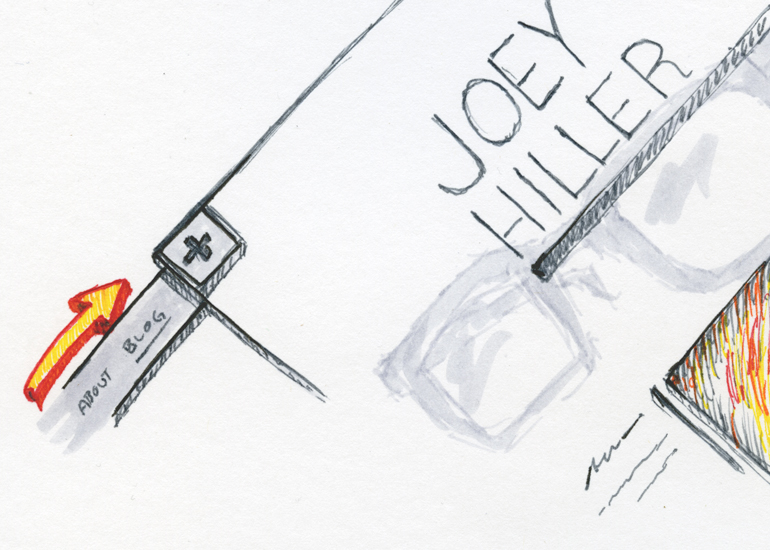 JOEY
HILLER
ABOUT BLOG